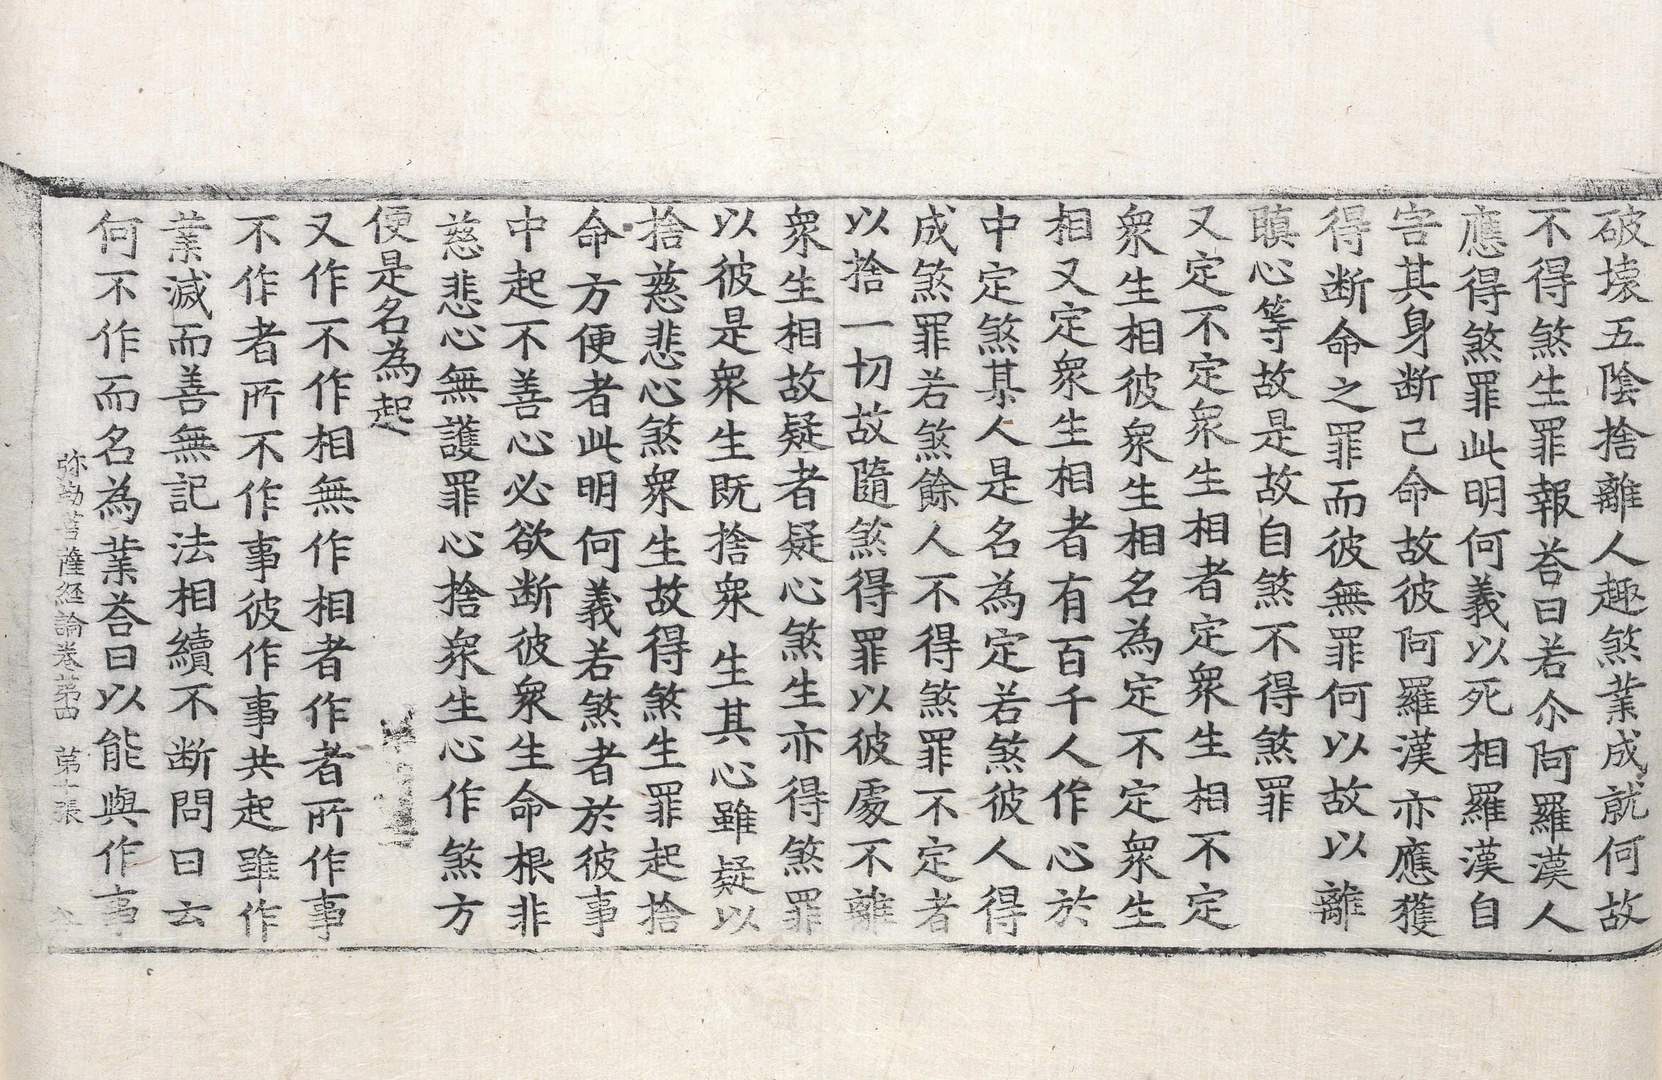 破壞五陰捨離人趣煞業成就何故
不得煞生罪報荅曰若尒阿羅漢人
應得煞罪此明何義以死相羅漢自
害其身断己命故彼阿羅漢亦應獲
得断命之罪而彼無罪何以故以離
瞋心等故是故自煞不得煞罪
又定不定衆生相者定衆生相不定
衆生相彼衆生相名為定不定衆生
相又定衆生相者有百千人作心於
中定煞某人是名為定若煞彼人得
成煞罪若煞餘人不得煞罪不定者
以捨一切故隨煞得罪以彼處不離
衆生相故疑者疑心煞生亦得煞罪
以彼是衆生既捨衆生其心雖疑以
捨慈悲心煞衆生故得煞生罪起捨
命方便者此明何義若煞者於彼事
中起不善心必欲断彼衆生命根非
慈悲心無護罪心捨衆生心作煞方
便是名為起
又作不作相無作相者作者所作事
不作者所不作事彼作事共起雖作
業滅而善無記法相續不断問曰云
何不作而名為業荅曰以能與作事
弥勒菩薩經論卷第四 第十張